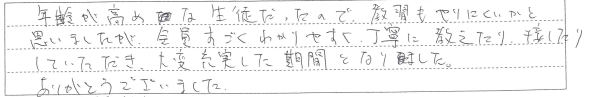 年齢が高めな生徒だったので、教習もやりにくいかと
思いましたが、全員すごくわかりやすく、丁寧に教えたり、接したり
していただき、大変充実した期間となりました。
ありがとうございました。